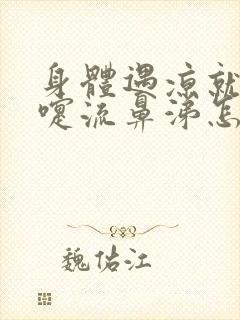 身體遇涼就
嚏流鼻涕怎
魏佑江